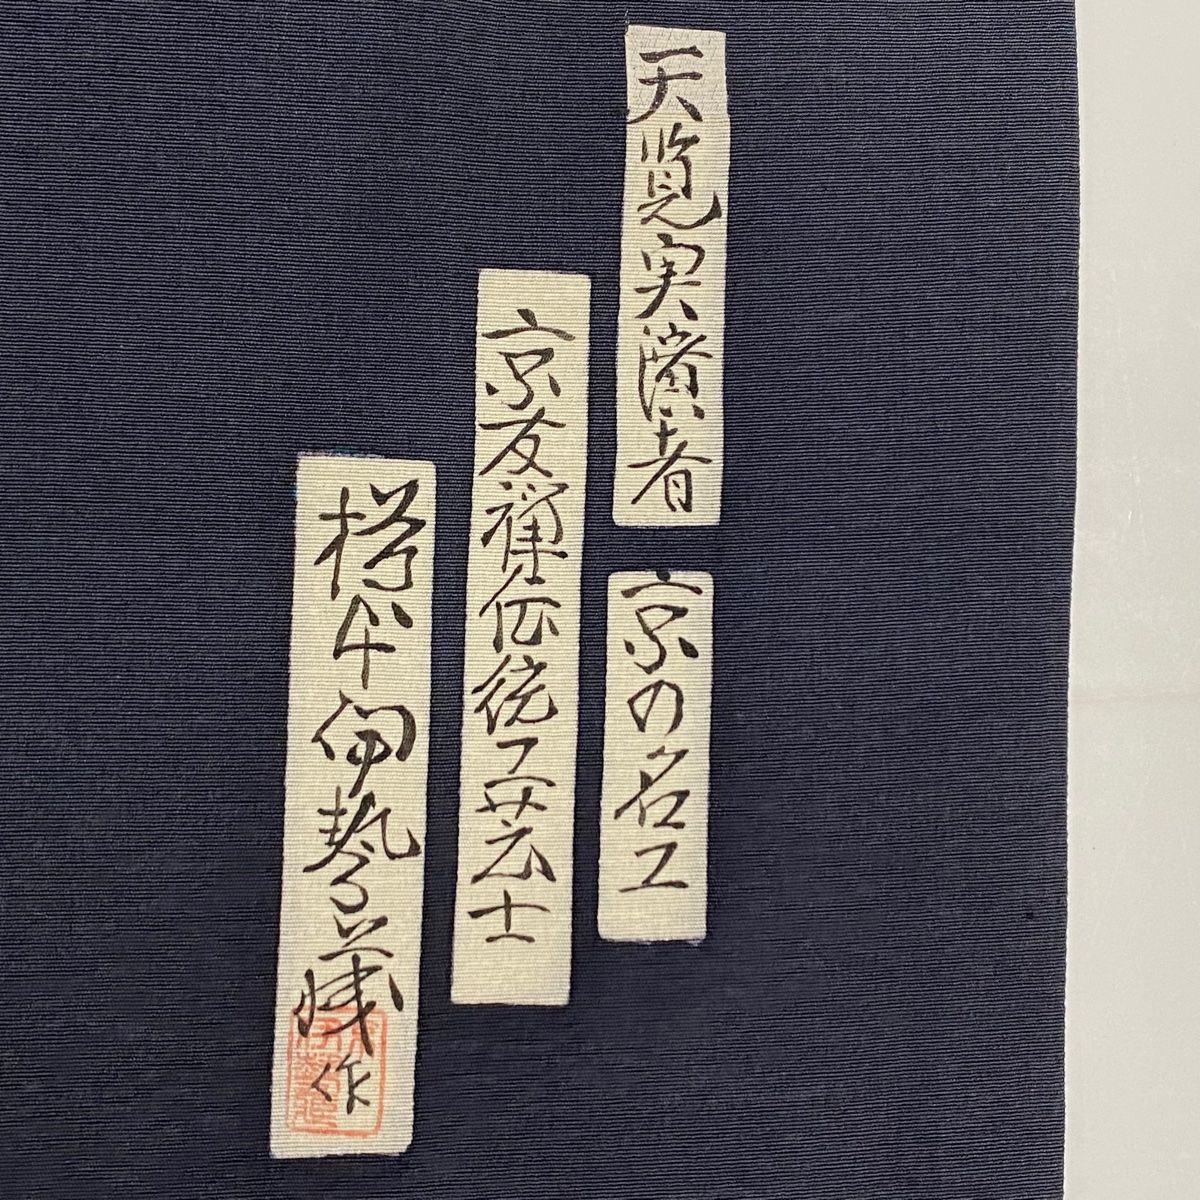 天覧実演者
京の名工
京友禅伝統工芸士
伊勢蔵作